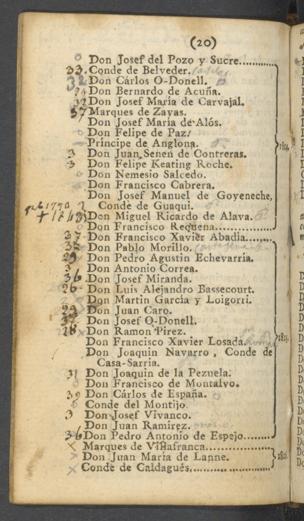 (20)
Don Josef del Pozo y Sucre............
33. Conde de Belveder.
32 Don Cárlos O-Donell.
Don Bernardo de Acuña.
Don Josef Maria de Carvajal.
57 Marques de Zayas.
Don Josef Maria de Alós.
Don Felipe de Paz.
Príncipe de Anglona.
3 Don Juan Senen de Contreras.
3 Don Felipe Keating Roche.
Don Nemesio Salcedo.
Don Francisco Cabrera.
Don Josef Manuel de Goyeneche,
Conde de Guaqui.
Don Miguel Ricardo de Alava.
Don Francisco Requena............
37 Don Francisco Xavier Abadia.......
Don Pablo Morillo.
Don Pedro Agustin Echevarria.
3 Don Antonio Correa.
36 Don Josef Miranda.
26 Don Luis Alejandro Bassecourt.
Don Martin Garcia y Loigorri.
Don Juan Caro.
Don Josef O-Donell.
28 Don Ramon Pirez.
Don Francisco Xavier Losada.
Don Joaquin Navarro, Conde de
Casa-Sarria.
31 Don Joaquin de la Pezuela.
Don Francisco de Montalvo.
Don Cárlos de España.
Conde del Montijo.
3 Don Josef Vivanco.
Don Juan Ramirez.
36 Don Pedro Antonio de Espejo........
x Marques de Villafranca............
Don Juan Maria de Lanne.
x Conde de Caldagués..................